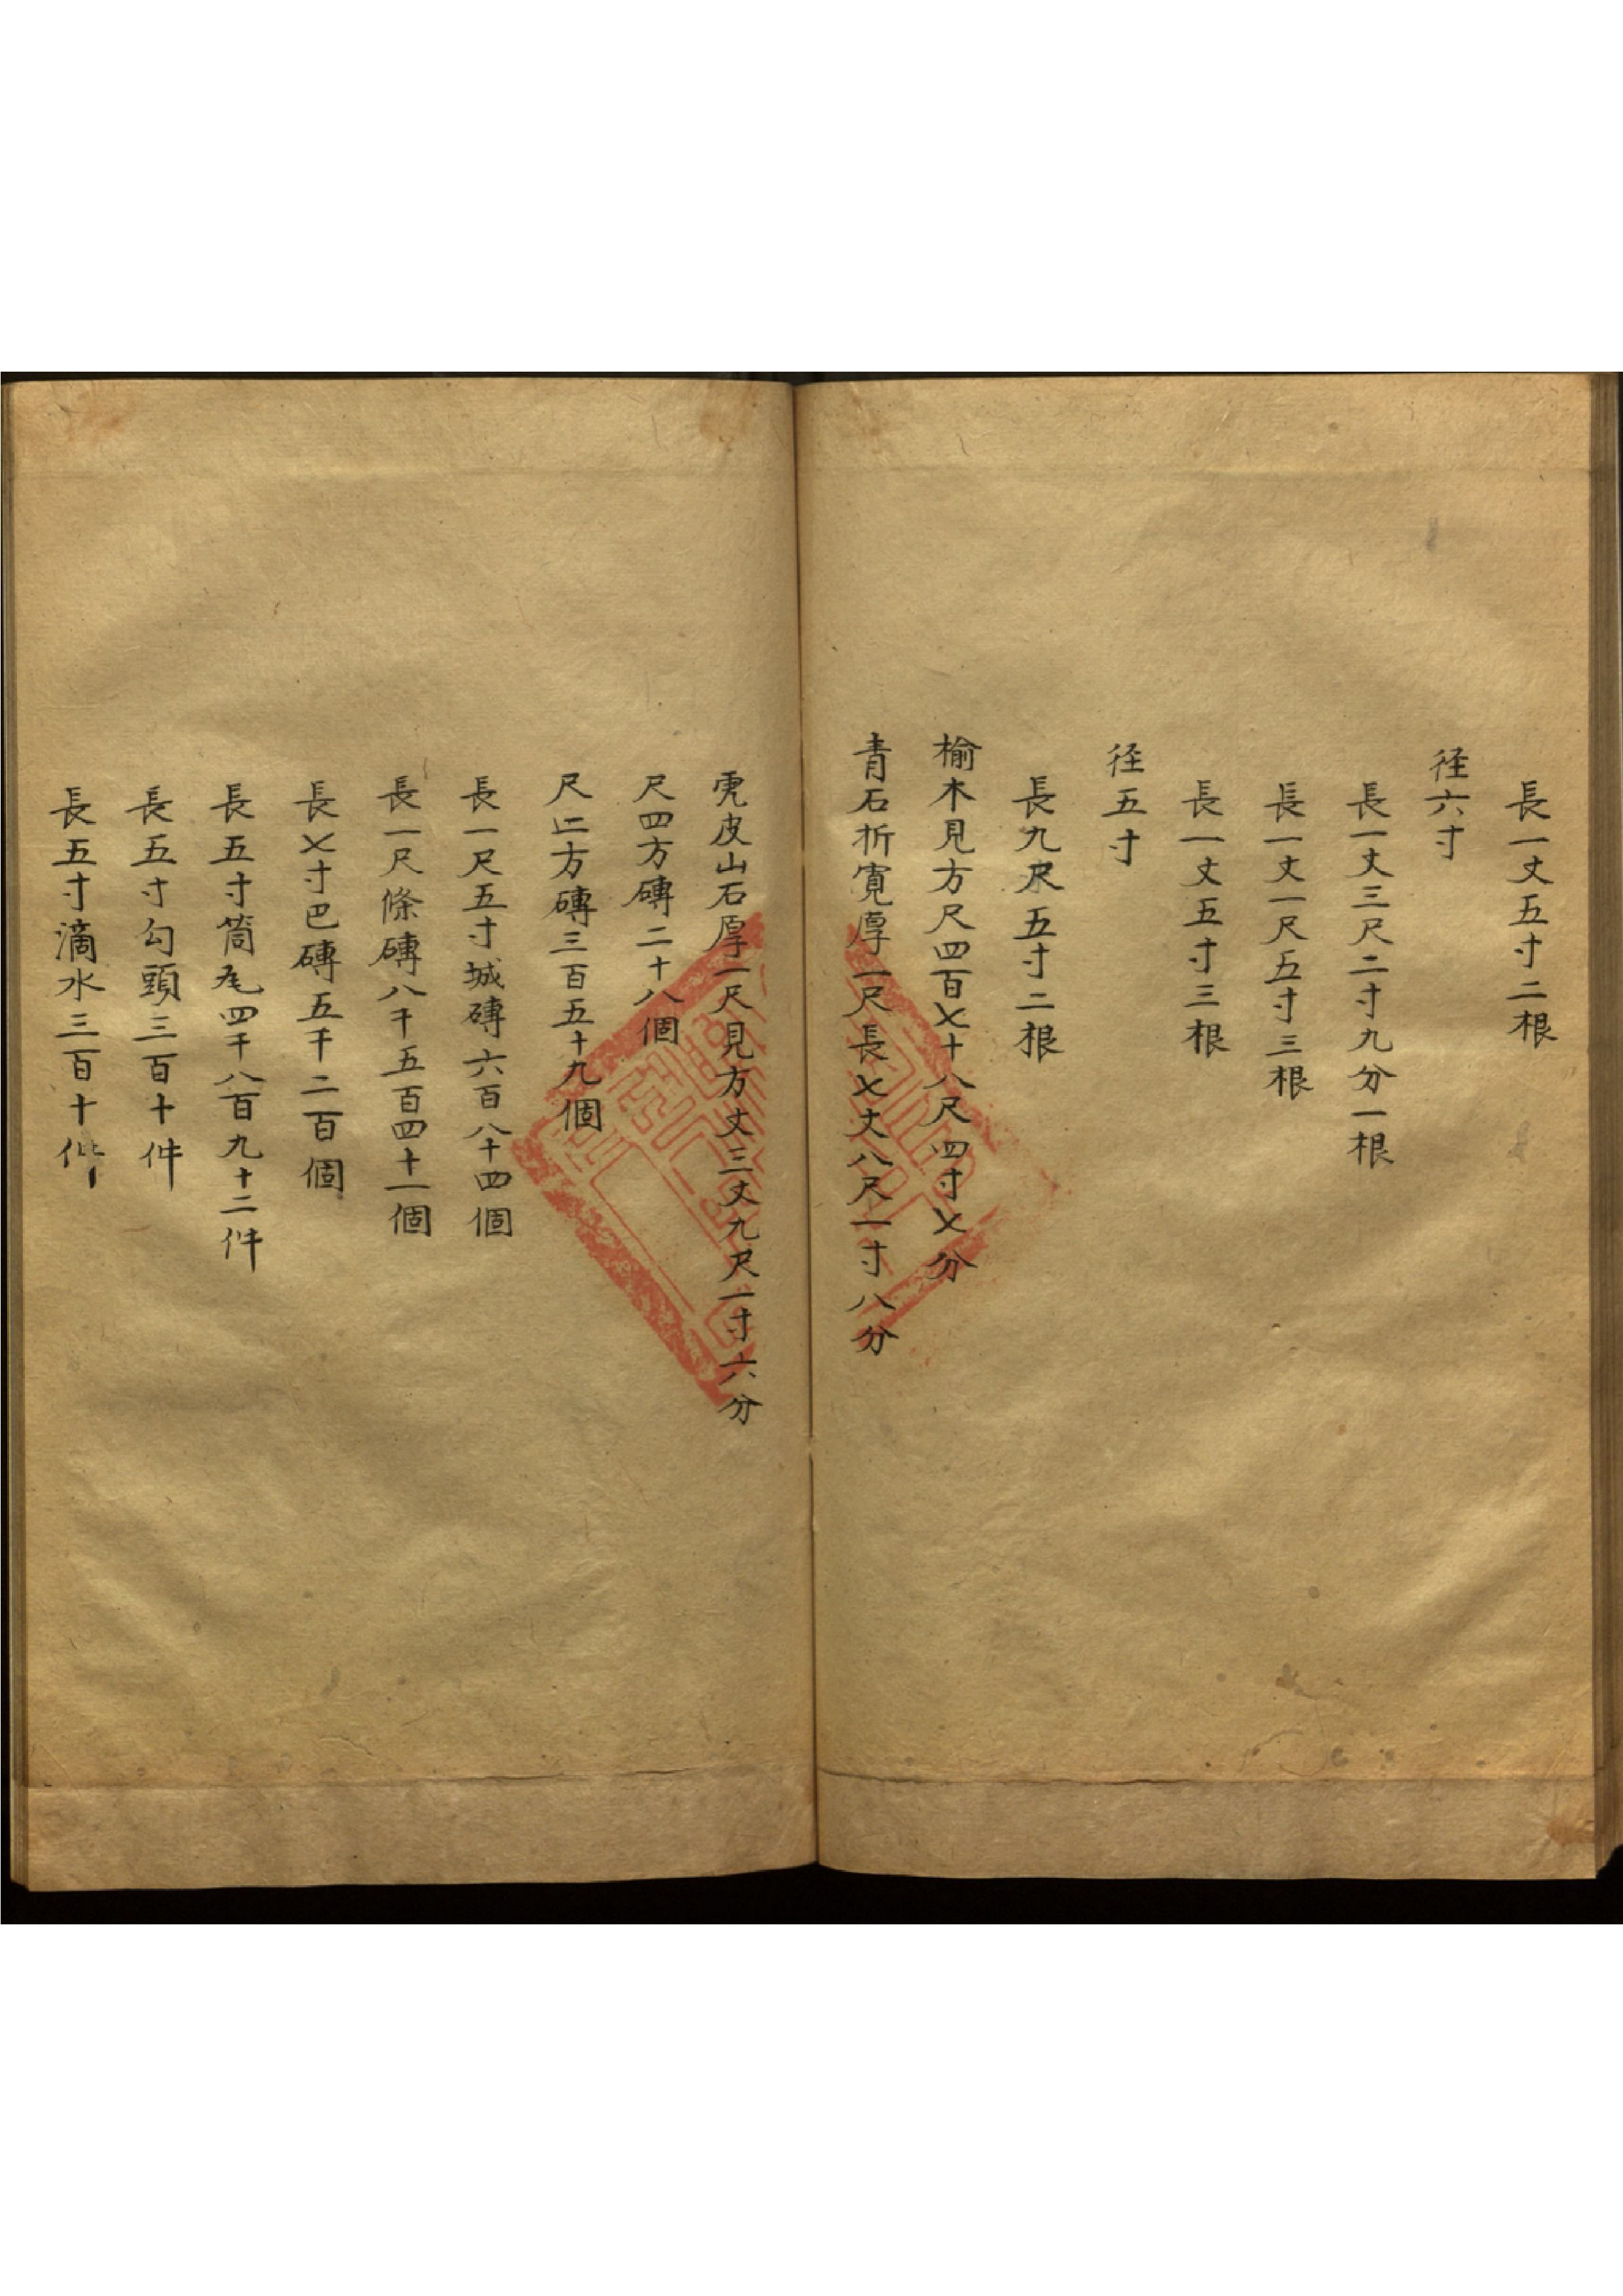 長一丈五寸二根
径六寸
長一丈三尺二寸九分一根
長一丈一尺五寸三根
長一丈五寸三根
径五寸
長九尺五寸二根
榆木見方尺四百七十八尺四寸七分
青石折寬厚一尺長七丈八尺一寸八分
虎皮山石厚一尺見方丈三丈九尺一寸六分
尺四方磚二十八個
尺二方磚三百五十九個
長一尺五寸城磚六百八十四個
長一尺條磚八千五百四十一個
長七寸巴磚五千二百個
長五寸筒瓦四千八百九十二件
長五寸勾頭三百十件
長五寸滴水三百十件